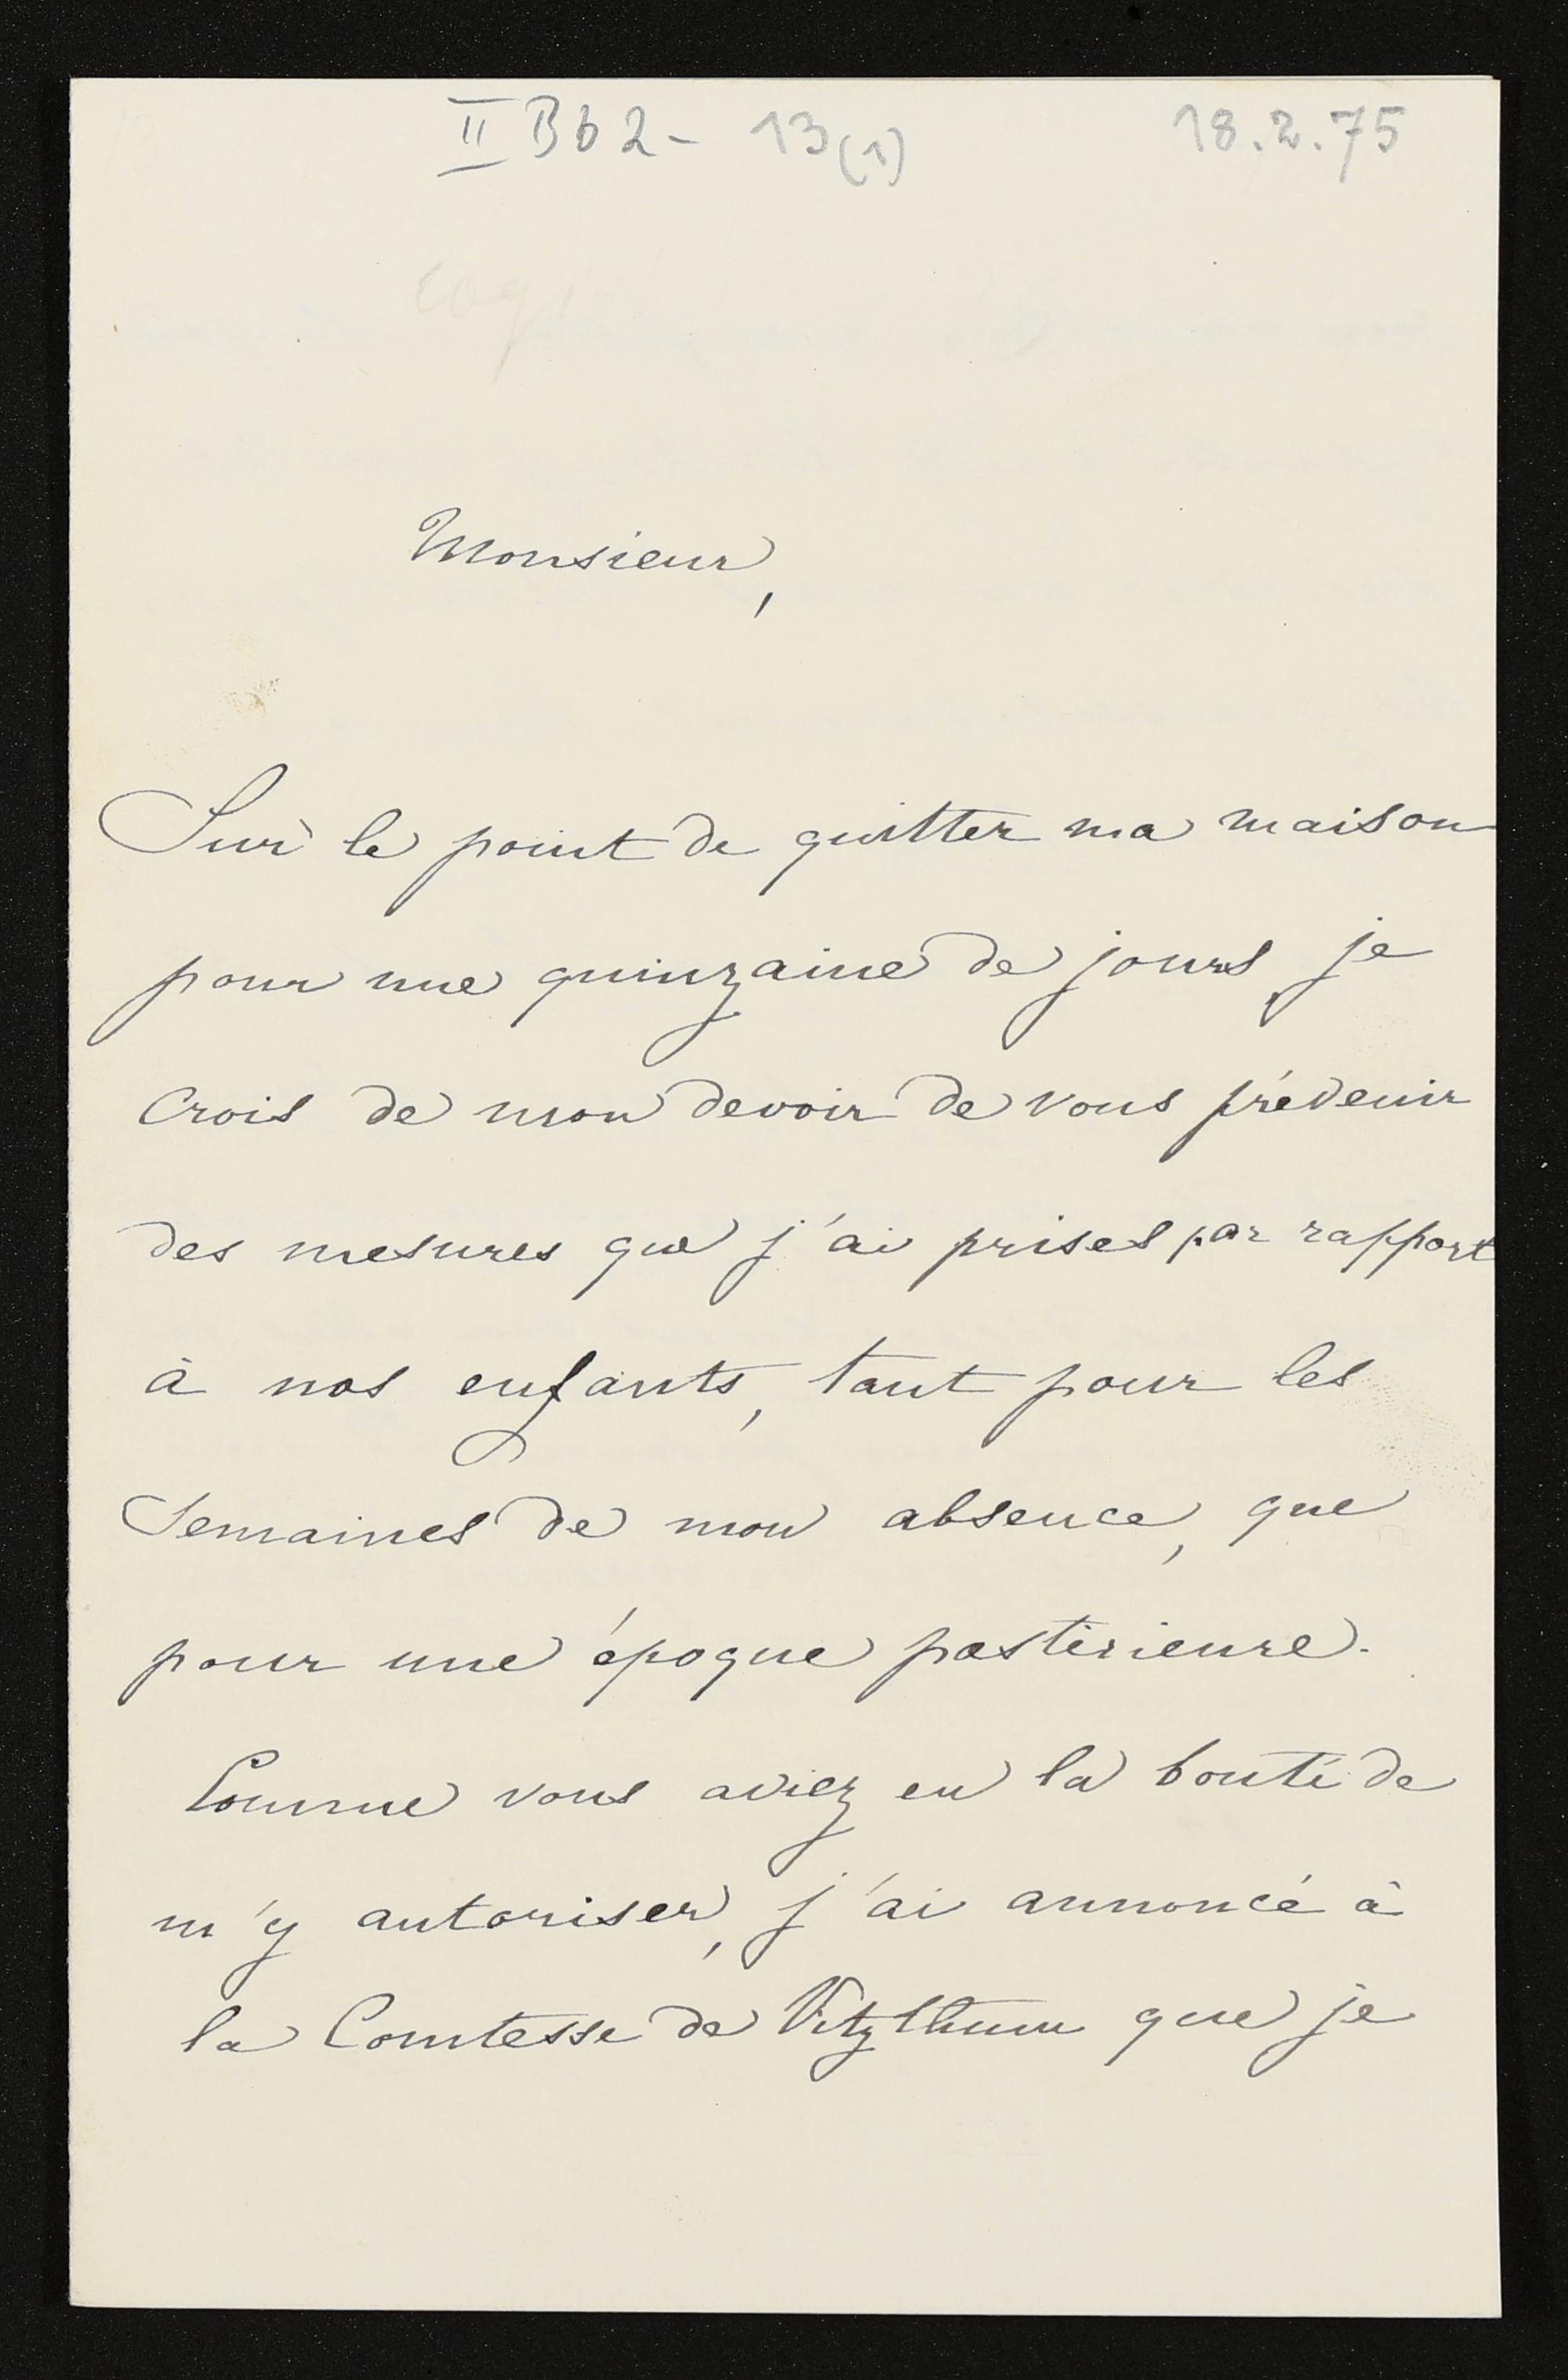 II Bb 2 - 13 (1) 18.2.75
Monsieur,
Sur le point de quitter ma maison
pour une quinzaine de jours, je
crois de mon devoir de vous prévenir
des mesures que j'ai prises par rapport
à nos enfants, tant pour les
semaines de mon absence, que
pour une époque postérieure.
Comme vous aviez eu la bonté de
m'y autoriser, j'ai annoncé à
la Comtesse de Vitzthum que je